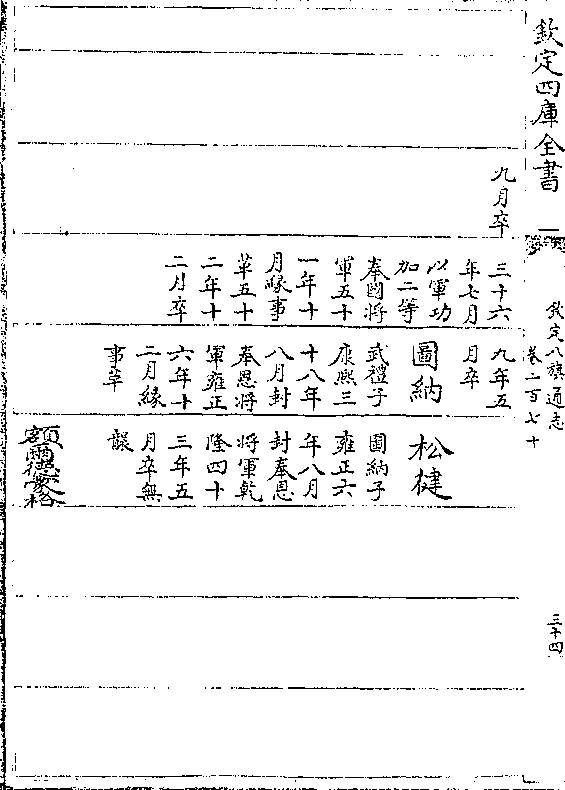 欽定四庫全書
欽定八旗通志
卷二百七十
三十四
九月卒
三十六
年七月
以軍功
加二等
奉國將
軍五十
一年十
月緣事
革五十
二年十
二月卒
九年五
月卒
圖納
武禮子
康熙三
十八年
八月封
奉恩將
軍雍正
六年十
二月緣
事革
松健
圖納子
雍正六
年八月
封奉恩
將軍乾
隆四十
三年五
月卒無
襲
額爾德格